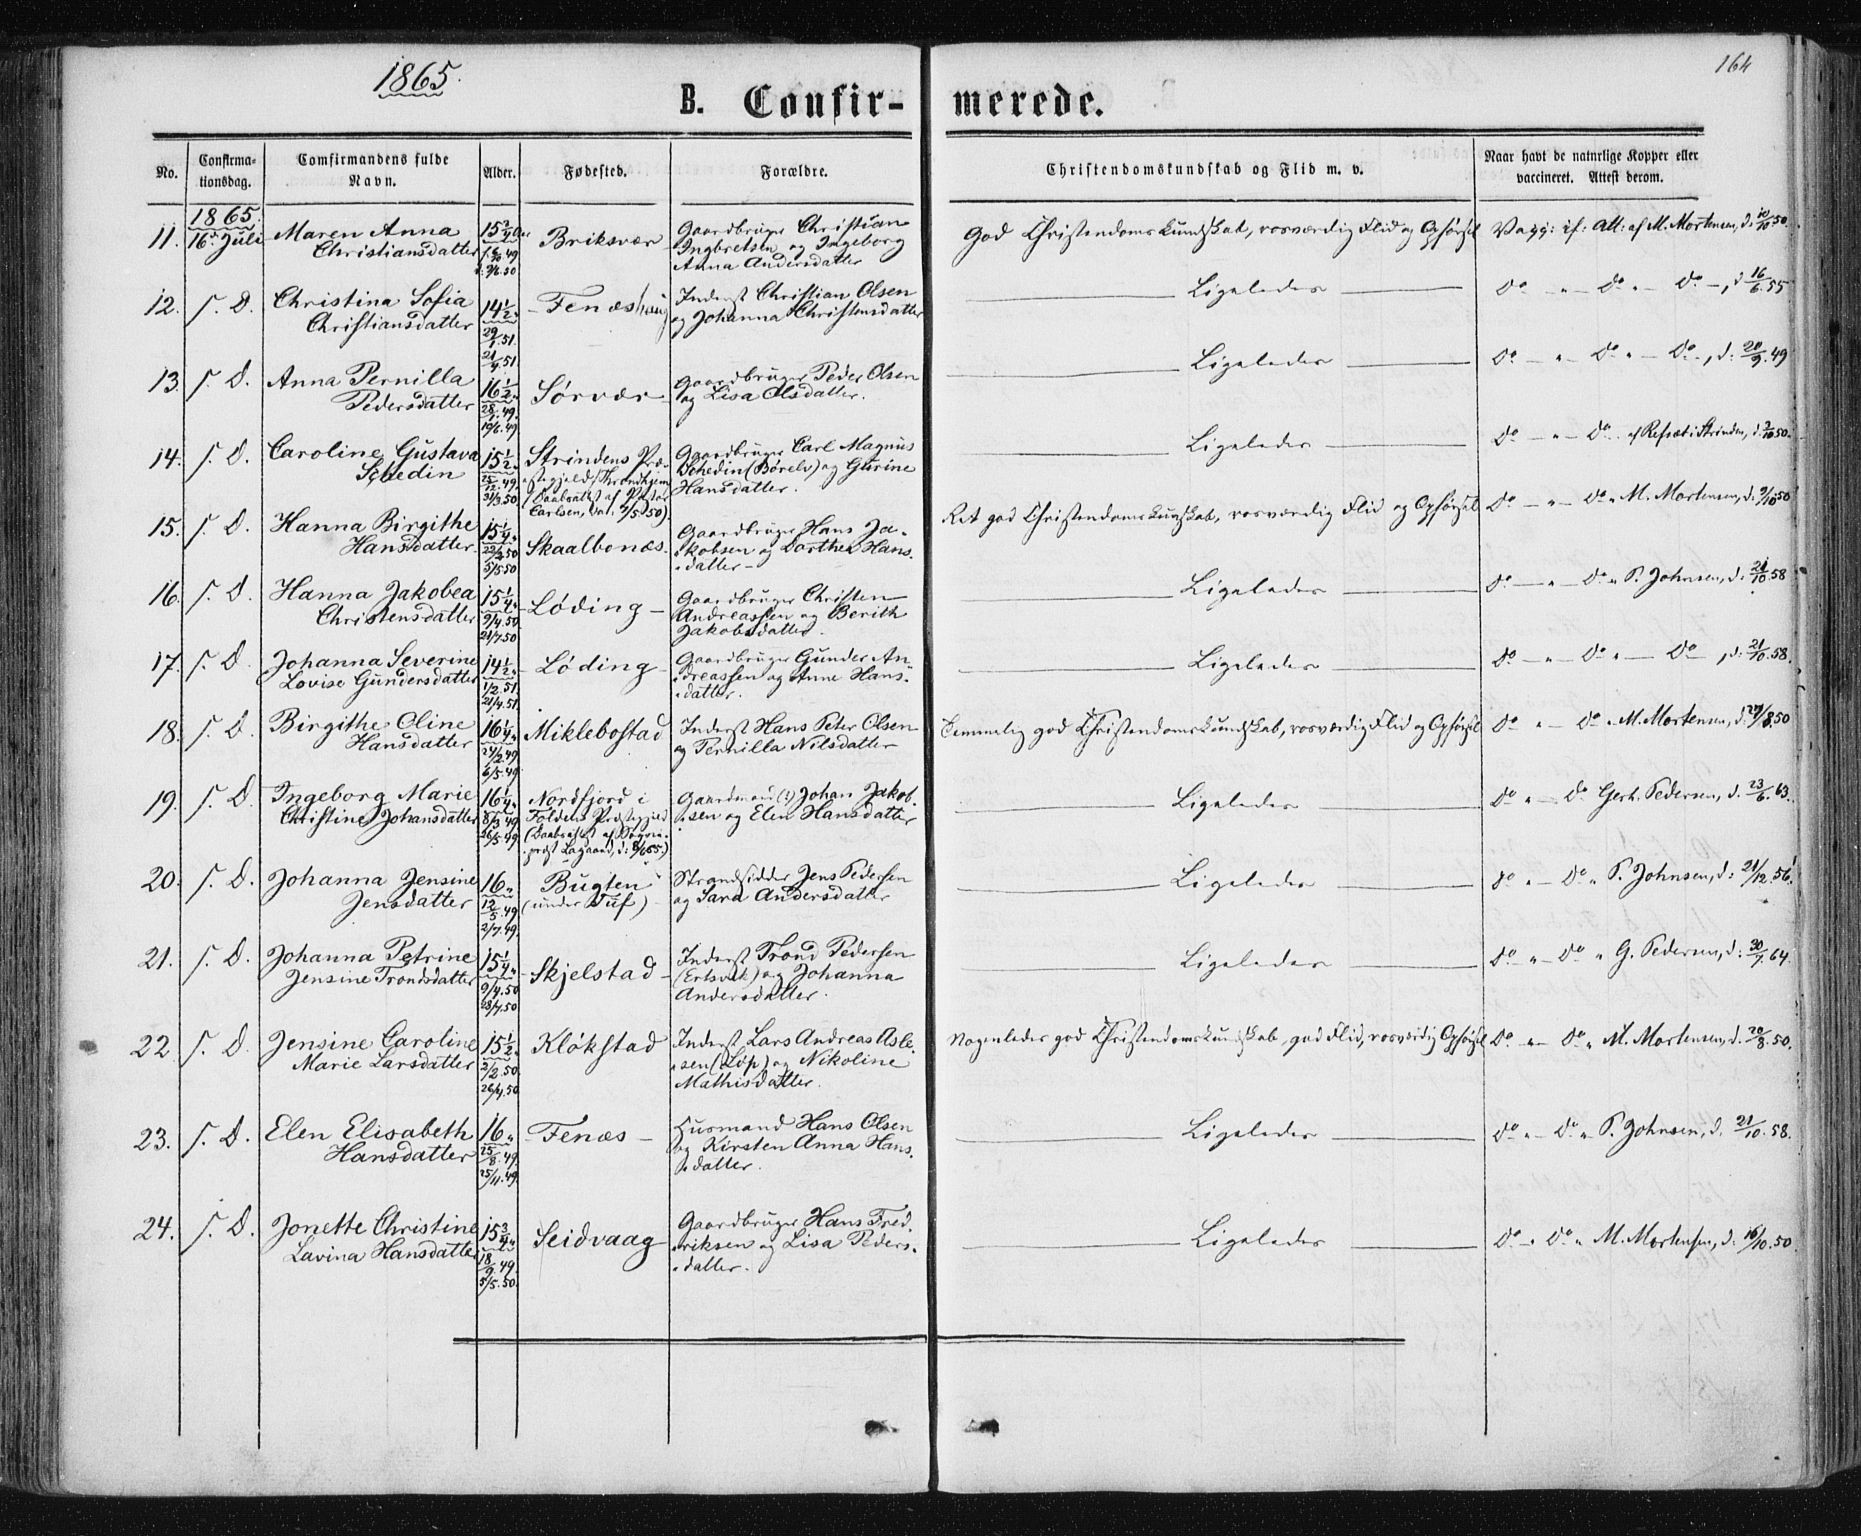 1865.
164
B. Confir-
merede.
No.
Confirma-
tionsdag.
Comfirmandens fulde
Navn.
Alder.
Fødested.
Forældre.
Christendomskundskab og Flid m. v.
Naar havt de naturlige Kopper eller
vaccineret. Attest derom.
1865.
11. 16de Juli Maren Anna
Christiansdatter
Briksvær
Gaardbruger Christian
Ingbretsen og Ingeborg
Anna Andersdatter
God Christendomskundskab, rosværdig Flid og Opførsel
Vacc: if: Att: af M. Mortensen, d: 10/10.50
12. s. D. Christina Sofia
Christiansdatter
14 1/2
29/1.51.
21/4.51
Fenæshaug
Inderst Christian Olsen
og Johanna Christensdatter
Ligeledes
do — " — do " — do —, d 16/6.55
13. s. D. Anna Pernilla
Pedersdatter
16 1/2
28/1.49.
19/6.49
Sørvær
Gaardbruger Peder Olsen
og Lisa Olsdatter.
Ligeledes
do — " — do " — do —, d: 20/9.49
14. s. D. Caroline Gustava
Schedin
15 1/2
25/12.49.
31/3.50
Strindens Præ-
stegjeld/Throndhjem
(Daabsattest af Pastor
Carlsen, dat. 2/5.50).
Gaardbruger Carl Magnus
Schedin (Børelv) og Gurine
Hansdatter.
Ligeledes
do — " — do af Refsæt i Strinden, d: 2/10.50.
15. s. D. Hanna Birgithe
Hansdatter
15 1/4
22/2.50
5/5.50
Skaalbonæs.
Gaardbruger Hans Ja-
kobsen og Dorthea Hans-
datter —
Ret god Christendomskundskab, rosværdig Flid og Opførsel
do — " — do " M. Mortensen, d: 9/10.50
16. s. D. Hanna Jakobea
Christensdatter
15 1/4
9/4.50.
21/7.50
Løding
Gaardbruger Christen
Andreassen og Berith
Jakobsdatter.
Ligeledes
do — " — do " P. Johnsen, d: 21/10.58
17. s. D. Johanna Severine
Lovise Gundersdatter
14 1/2
1/2.51.
21/4.51.
Løding
Gaardbruger Gunder An-
dreassen og Anne Hans-
datter.
Ligeledes
do — " — do " — do —, d: 21/10.58.
18. s. D. Birgithe Oline
Hansdatter
16 1/4
24/2.49
6/5.49
Miklebostad
Inderst Hans Peter Olsen
og Pernilla Nilsdatter
Temmelig god Christendomskundskab, rosværdig Flid og Opførsel
do " — do " M. Mortensen, d: 29/8.50
19. s. D. Ingeborg Marie
Christine Johansdatter
16 1/4
8/3.49
26/5.49
Nordfjord i
Foldens Præstegjeld
(Daabsattest af Sogne-
præst Lagaard, d: 8/6 65.)
Gaardmand (:) Johan Jakob-
sen og Elen Hansdatter
Ligeledes
do " — do Gerh. Pedersen, d. 23/6.63.
20. s. D. Johanna Jensine
Jensdatter
16
12/5.49.
2/7.49.
Bugten
(under Tuf)
Strandsidder Jens Pedersen
og Sara Andersdatter
Ligeledes
do " — do " P. Johnsen, d: 21/12.56.
21. s. D. Johanna Petrine
Jensine Trondsdatter
15 1/4
9/4.50
28/7.50
Skjelstad
Inderst Trond Pedersen
(Ertsvik) og Johanna
Andersdatter.
Ligeledes
do " — do " G. Pedersen, d: 30/7.64.
22 s. D. Jensine Caroline
Marie Larsdatter
15 1/2
2/2.50.
26/4.50
Kløkstad
Inderst Lars Andreas Asle-
sen (Løp) og Nikoline
Mathisdatter.
Nogenledes god Christendomskundskab, god Flid, rosværdig Opførsel
do " — do " M. Mortensen, d. 20/8.50.
23. s. D. Elen Elisabeth
Hansdatter
16
25/8.49.
25/11.49
Fenæs
Husmand Hans Olsen
og Kirsten Anna Hans-
datter.
Ligeledes
do " — do " P. Johnsen, d. 21/10.58.
24. s. D. Jonette Christine
Lavina Hansdatter
15 3/4
18/9.49.
5/5.50.
Seidvaag
Gaardbruger Hans Fred-
riksen og Lisa Peders-
datter.
Ligeledes
do " do " M. Mortensen, d: 16/10.50.